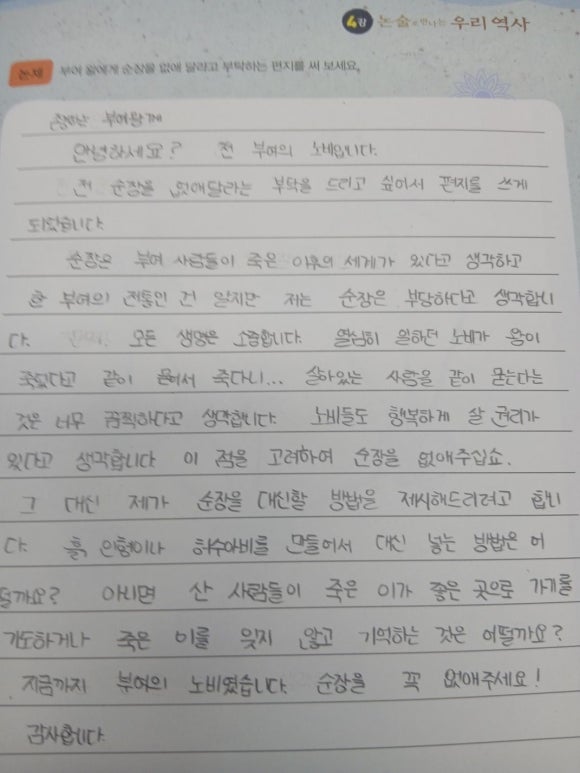 4강 논술로 만나는 우리 역사
논제 부여 왕에게 순장을 없애 달라고 부탁하는 편지를 써 보세요.
부여왕께
안녕하세요? 전 부여의 노비입니다.
전 순장을 없애달라는 부탁을 드리고 싶어서 편지를 쓰게
되었습니다.
순장은 부여 사람들이 죽은 이후의 세계가 있다고 생각하고
한 부여의 전통인 건 알지만 저는 순장은 부당하다고 생각합니
다. 모든 생명은 소중합니다. 열심히 일하던 노비가 왕이
죽었다고 같이 묻혀서 죽다니... 살아있는 사람을 같이 묻는다는
것은 너무 끔찍하다고 생각합니다. 노비들도 행복하게 살 권리가
있다고 생각합니다 이 점을 고려하여 순장을 없애주십쇼.
그 대신 제가 순장을 대신할 방법을 제시해드리려고 합니
다. 흙 인형이나 허수아비를 만들어서 대신 넣는 방법은 어
떨까요? 아니면 산 사람들이 죽은 이가 좋은 곳으로 가기를
기도하거나 죽은 이를 잊지 않고 기억하는 것은 어떨까요?
지금까지 부여의 노비였습니다. 순장을 꼭 없애주세요!
감사합니다.